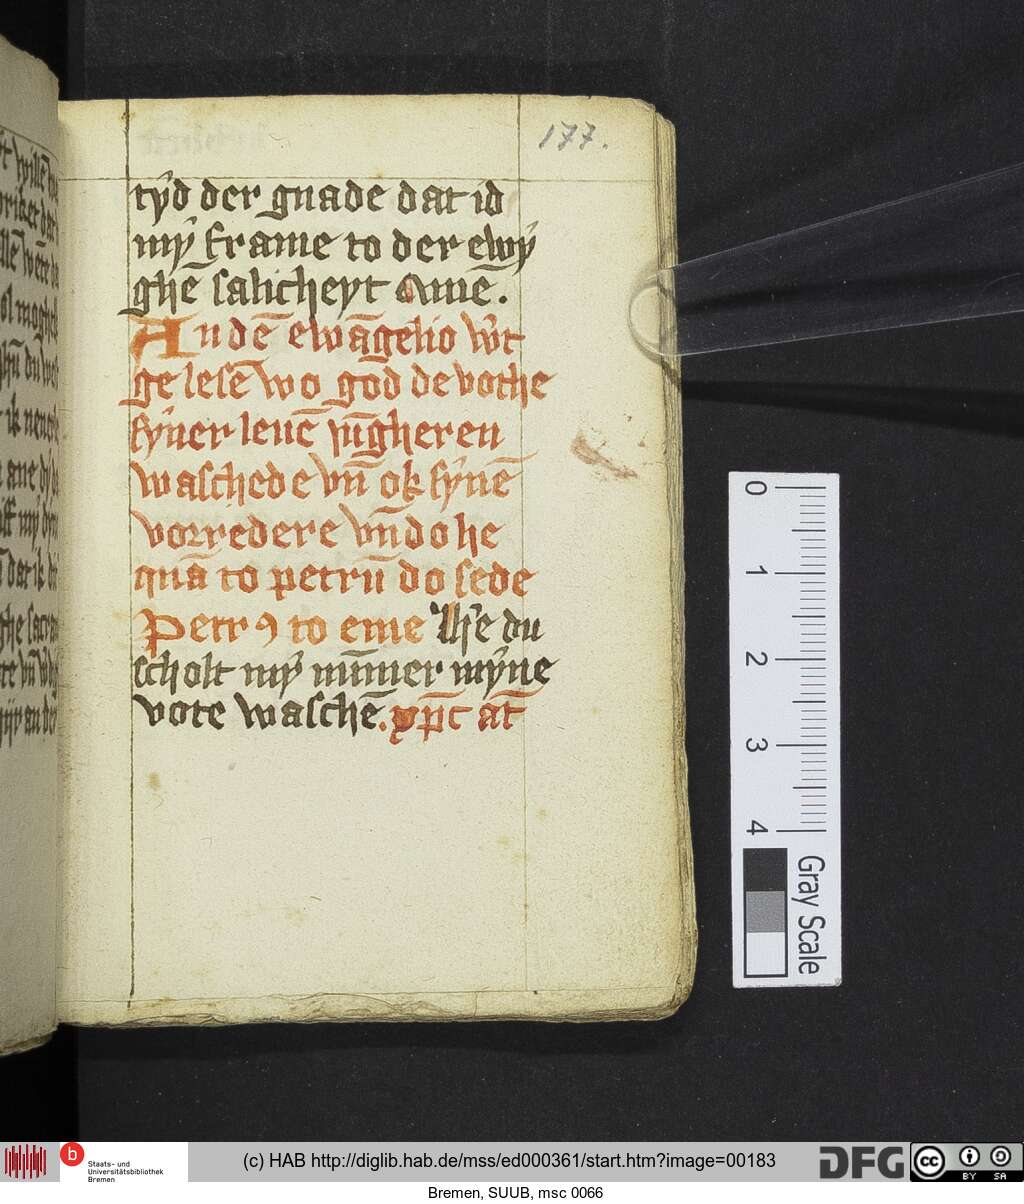 177.
tyd der gnade dat id
mẏ frame to der ewẏ
ghē salicheyt Amē.
An dē ewāgelio wͤt
ge lesē wo god de vothe
syner leuē iūgheren
waschede vn̄ ok synē
vorredere vn̄ do he
quā to petrū do sede
Petrꝯ to eme Ihe du
scholt mẏ nūmer myne
vote waschē. xp̄c at̄
0
1
2
3
4
Gray Scale
b
Staats- und
Universitätsbibliothek
Bremen
(c) HAB http://diglib.hab.de/mss/ed000361/start.htm?image=00183
DFG
cc
BY SA
Bremen, SUUB, msc 0066